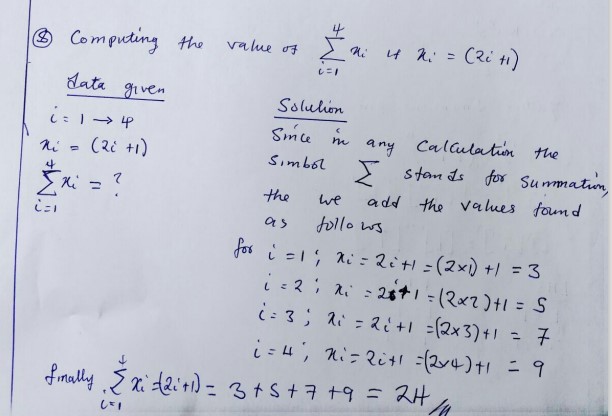 ⑧ Computing the value of \sum_{i=1}^{4} xi if xi = (2i+1)
data given
i = 1 → 4
xi = (2i +1)
\sum_{i=1}^{4} xi = ?
Solution
Since in any Calculation the
Simbol ∑ stands for Summation,
the we add the values found
as follows
for i = 1 ; xi = 2i+1 = (2x1) +1 = 3
i = 2 ; xi = 2i+1 = (2x2)+1 = 5
i = 3 ; xi = 2i+1 = (2x3)+1 = 7
i = 4 ; xi = 2i+1 = (2x4)+1 = 9
finally, \sum_{i=1}^{4} xi = (2i+1) = 3+5+7+9 = 24 //